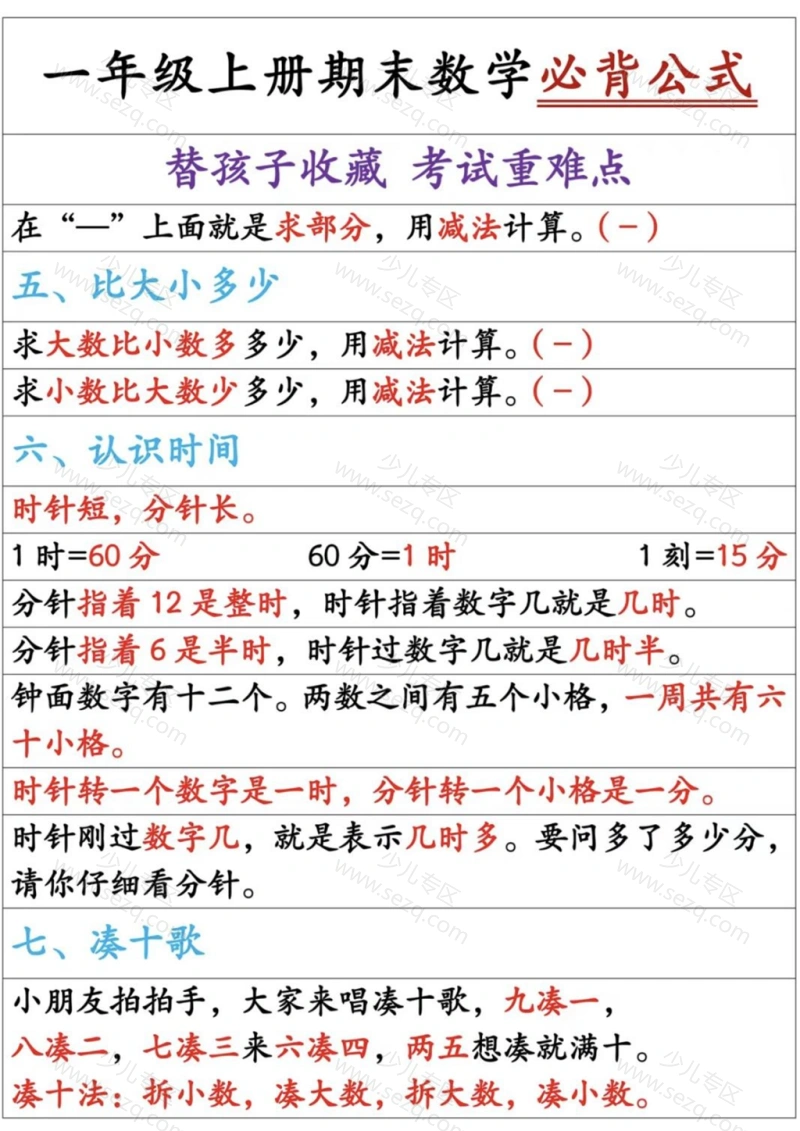 一年级上册期末数学必背公式
替孩子收藏 考试重难点
在“—”上面就是求部分，用减法计算。（－）
五、比大小多少
求大数比小数多多少，用减法计算。（－）
求小数比大数少多少，用减法计算。（－）
六、认识时间
时针短，分针长。
1时=60分 60分=1时 1刻=15分
分针指着12是整时，时针指着数字几就是几时。
分针指着6是半时，时针过数字几就是几时半。
钟面数字有十二个。两数之间有五个小格，一周共有六
十小格。
时针转一个数字是一时，分针转一个小格是一分。
时针刚过数字几，就是表示几时多。要问多了多少分，
请你仔细看分针。
七、凑十歌
小朋友拍拍手，大家来唱凑十歌，九凑一，
八凑二，七凑三来六凑四，两五想凑就满十。
凑十法：拆小数，凑大数，拆大数，凑小数。
少儿专区
www.sezq.com